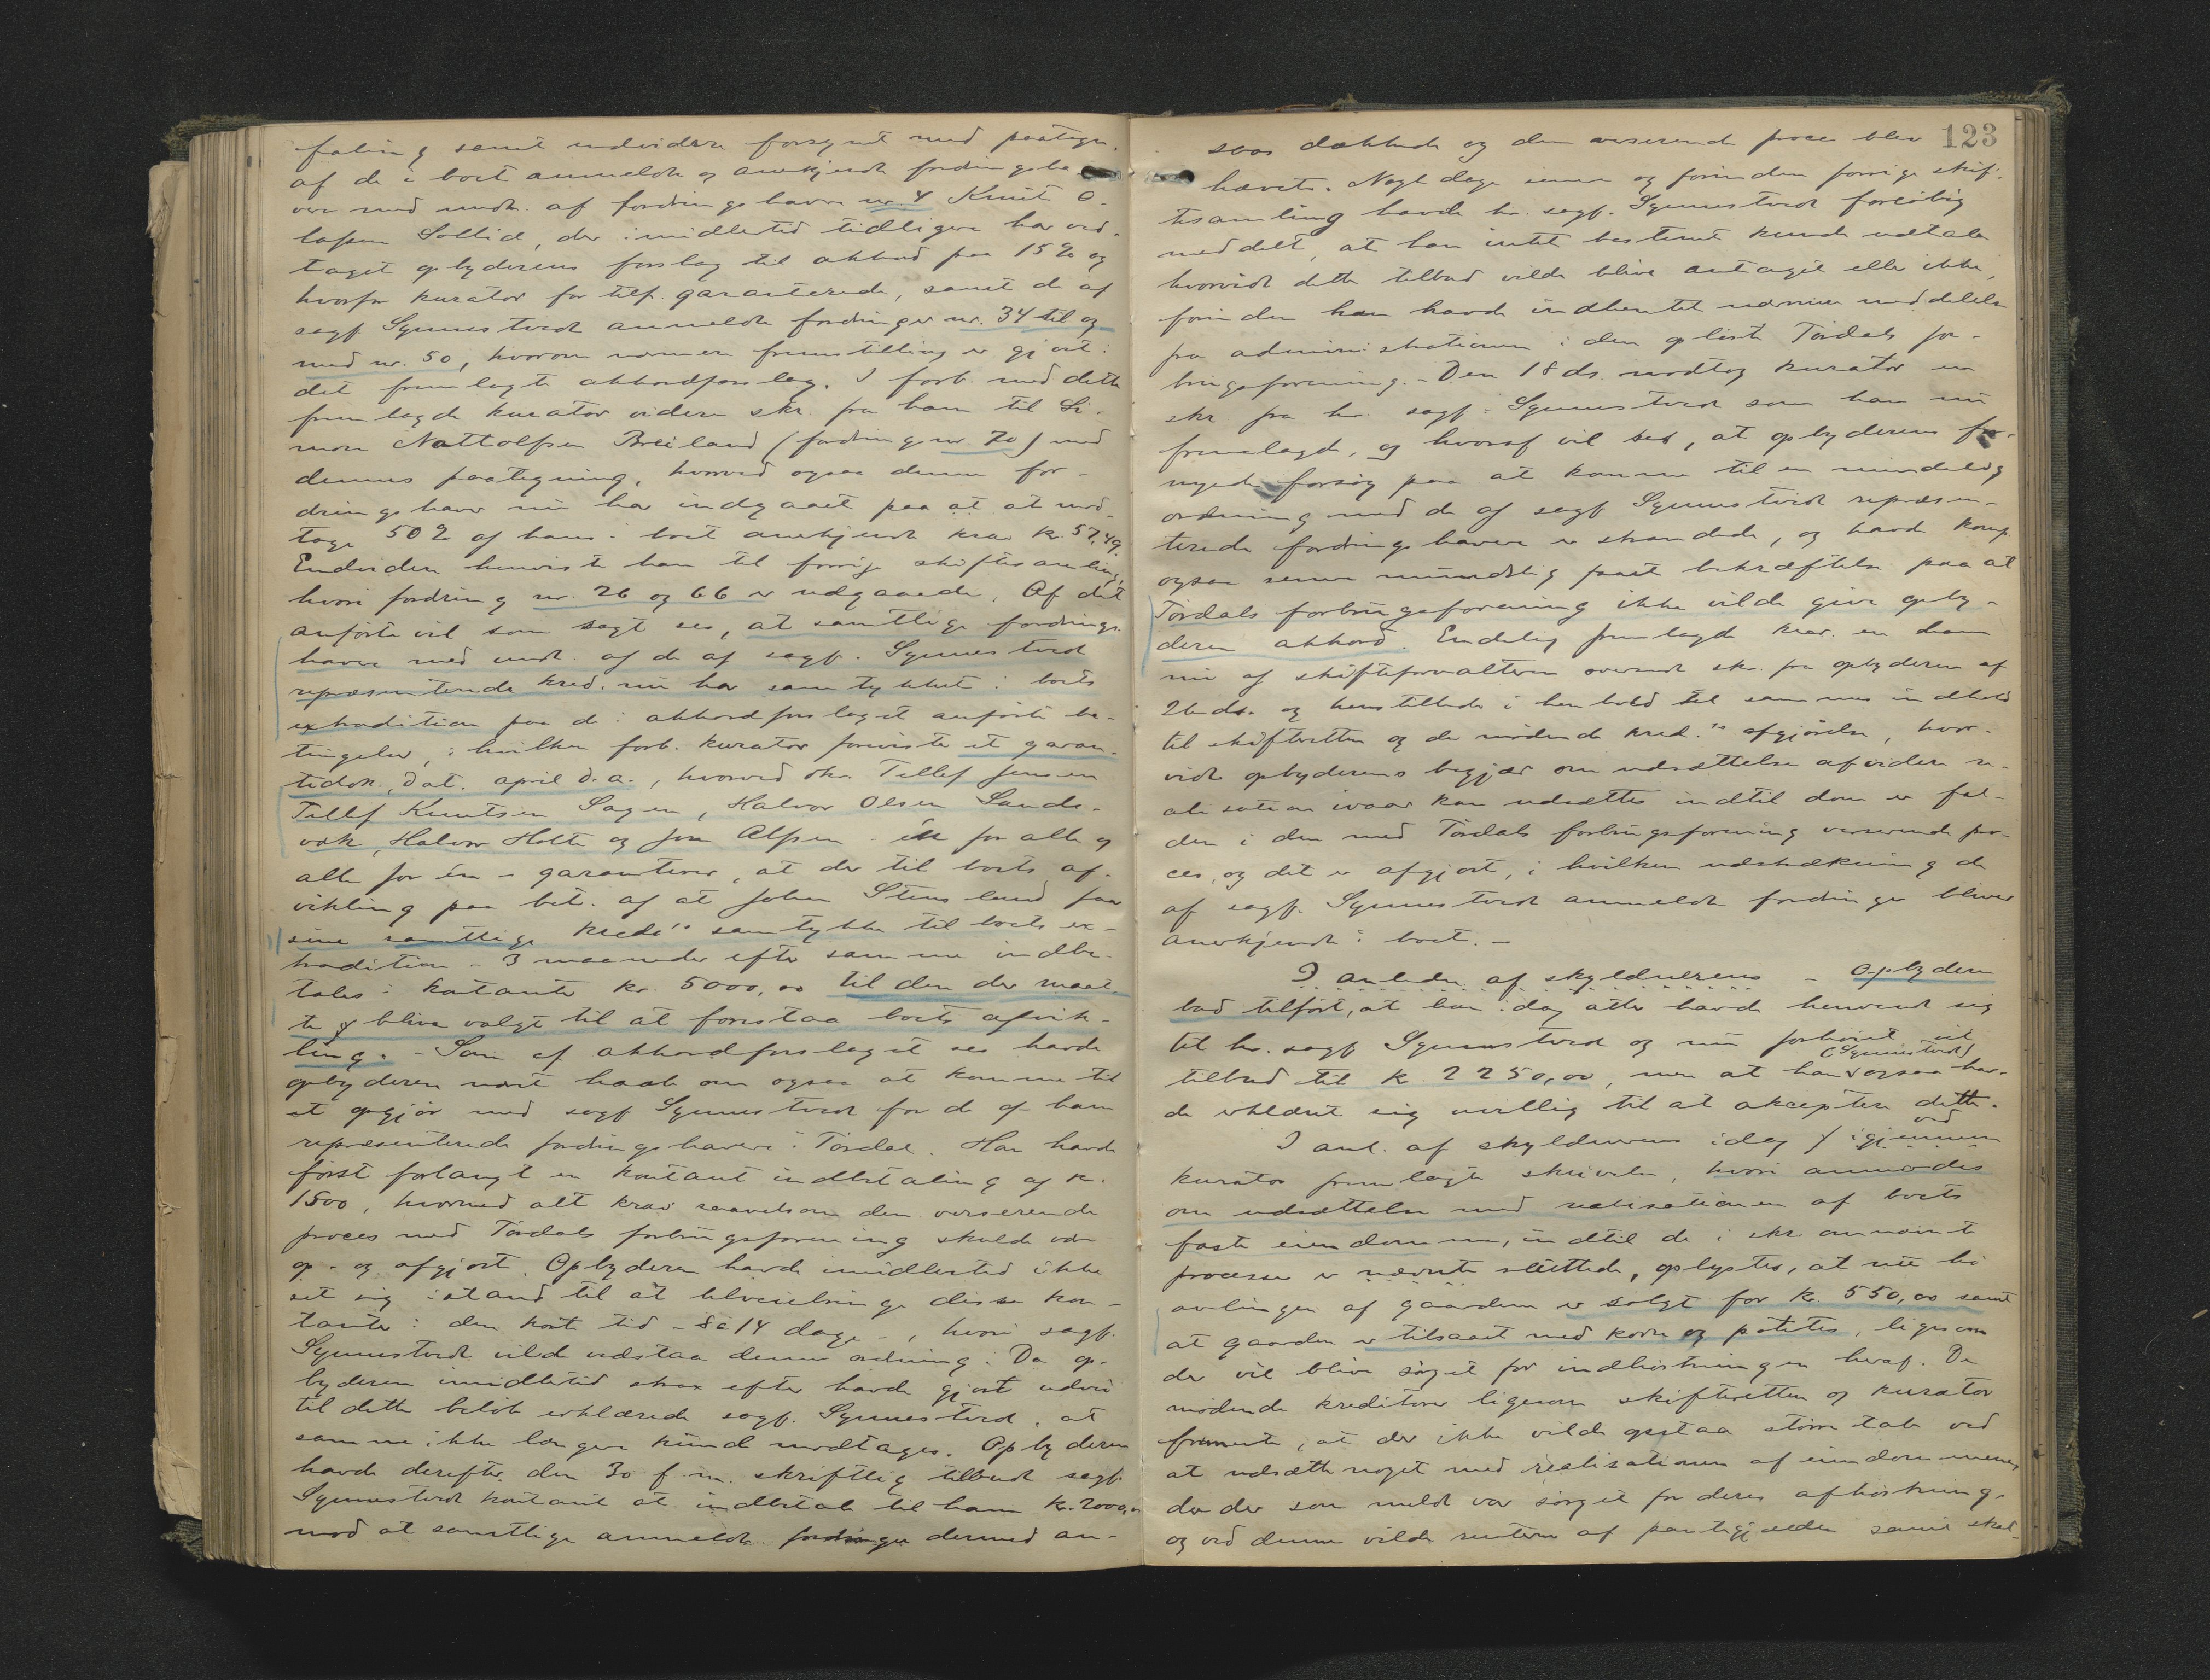 faling samt endvidere forsynet med paategn.
af de i boet anmeldte og anerkjendte fordringsha-
vere med undt. af fordringshaver nr. 4 Knut O-
lafsen Sollid, der imidlertid tidligere har ved-
taget opbyderens forslag til akkord paa 15 % og
hvorfor kurator for tilf. garanterede, samt de af
sagf. Synnestvedt anmeldte fordringer nr. 34 til og
med nr. 50, hvorom nærmere fremstilling er gjort i
det fremlagte akkordforslag. I forb. med dette
fremlagde kurator videre skr. fra ham til Si-
mon Nattolfsen Breiland (fordring nr. 70) med
dennes paategning, hvorved ogsaa denne for-
dringshaver nu har indgaaet paa at at mod-
tage 50 % af hans i boet anerkjendte krav kr. 57,49.
Endvidere henviste han til forrige skiftesamling,
hvori fordring nr. 26 og 66 er udgaaede. Af det
anførte vil som sagt sees, at samtlige fordrings-
havere med undt. af de af sagf. Synnestvedt
repræsenterede kred. nu har samtykket i boets
extradition paa de i akkordforslaget anførte be-
tingelser, i hvilken forb. kurator foreviste et garan-
tidok., dat. april d.a., hvorved hr. Tellef Jensen
Tellef Knutsen Sagen, Halvor Olsen Lands-
verk, Halvor Holte og Jon Alfsen - én for alle og
alle for én - garanterer, at der til boets af-
vikling paa bet. af at John Stensland faar
sine samtlige kreds's samtykke til boets ex-
tradition - 3 maaneder efter samme indbe-
tales i kontanter kr. 5000,00 til den der maat-
te blive valgt til at forestaa boets afvik-
ling. - Som af akkordforslaget sees havde
opbyderen nært haab om ogsaa at komme til
et opgjør med sagf. Synnestvedt for de af ham
repræsenterede fordringshavere i Tørdal. Han havde
først forlangt en kontant indbetaling af kr.
1500, hvormed alt krav saavelsom den verserende
proces med Tørdals forbrugsforening skulde være
op- og afgjort. Opbyderen havde imidlertid ikke
set sig istand til at tilveiebringe disse kon-
tanter i den korte tid - 8 à 14 dage -, hvori sagf.
Synnestvedt vilde vedstaa denne ordning. Da op-
byderen imidlertid strax efter havde gjort udvei
til dette beløb erklærede sagf. Synnestvedt, at
samme ikke længere kunde modtages. Opbyderen
havde derefter den 30 f.m. skriftlig tilbudt sagf.
Synnestvedt kontant at indbetale til ham kr. 2000,00
mod at samtlige anmeldte fordringer dermed an-
123
saaes dækkede og den verserende proces blev
hævet. Nogle dage senere og forinden forrige skif-
tesamling havde hr. sagf. Synnestvedt foreløbig
meddelt, at han intet bestemt kunde udtale
hvorvidt dette tilbud vilde blive antaget eller ikke,
forinden han havde indhentet nærmere meddelelse
fra administrationen i den opløste Tørdals for-
brugsforening. - Den 18 ds. modtog kurator en
skr. fra hr. sagf. Synnestvedt som han nu
fremlagde, og hvoraf vil sees, at opbyderens for-
nyede forsøg paa at komme til en mindelig
ordning med de af sagf. Synnestvedt repræsen-
terede fordringshavere er strandede, og havde komp.
ogsaa senere mundtlig faaet bekræftelse paa at
Tørdals forbrugsforening ikke vilde give opby-
deren akkord. Endelig fremlagde kur. en ham
nu af skifteforvalteren oversendt skr. fra opbyderen af
26 ds. og henstillede i henhold til sammes indhold
til skifteretten og de mødende kred.'s afgjørelse, hvor-
vidt opbyderens begjær om udsættelse af videre re-
alisation ivaar kan udsættes indtil dom er fal-
den i den med Tørdals forbrugsforening verserende pro-
ces, og det er afgjort, i hvilken udstrækning de
af sagf. Synnestvedt anmeldte fordringer bliver
anerkjendte i boet. -
I anledn. af skyldnerens - Opbyderen
bad tilført, at han idag atter havde henvendt sig
til hr. sagf. Synnestvedt og nu forhøiet sit
(Synnestvedt)
tilbud til kr. 2250,00, men at han ogsaa hav-
de erklæret sig uvillig til at akceptere dette.
I anl. af skyldnerens idag igjennem
ved
kurator fremlagte skrivelse, hvori anmodes
om udsættelse med realisationen af boets
faste eiendomme, indtil de i skr. omnævnte
processer er nævnte sluttede, oplystes, at nu hø
avlingen af gaarden er solgt for kr. 550,00 samt
at gaarden er tilsaaet med korn og potetes, ligesom
der vil blive sørget for indhøstningen heraf. De
mødende kreditorer ligesom skifteretten og kurator
fremente, at der ikke vilde opstaa større tab ved
at udsætte noget med realisationen af eiendommene,
da der som meldt var sørget for deres afhøstning,
og ved denne vilde renterne af pantegjælden samt skat-